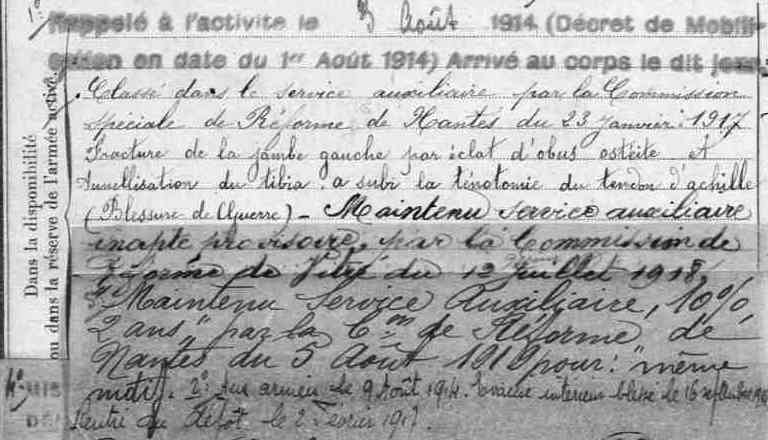 1° Rappelé à l'activité le 3 Août 1914 (Décret de Mobili-
sation en date du 1er Août 1914) Arrivé au corps le dit jour
Classé dans le service auxiliaire par la Commission
spéciale de Réforme de Nantes du 23 janvier 1917
Fracture de la jambe gauche par éclat d'obus ostéite et
tunellisation du tibia. a subi la ténotomie du tendon d'achille
(Blessure de Guerre) - Maintenu service auxiliaire
inapte provisoire, par la Commission de
Réforme de Vitré du 12 Juillet 1918,
3° Maintenu Service Auxiliaire, 10%,
2 ans" par la Cion de Réforme de
Nantes du 5 Août 1919 pour: "même
motif. 2° aux armées le 9 Août 1914. Evacué intérieur blessé le 16 septembre
4° Rentré au Dépôt le 2 Février 191
Dans la disponibilité
ou dans la réserve de l'armée active.